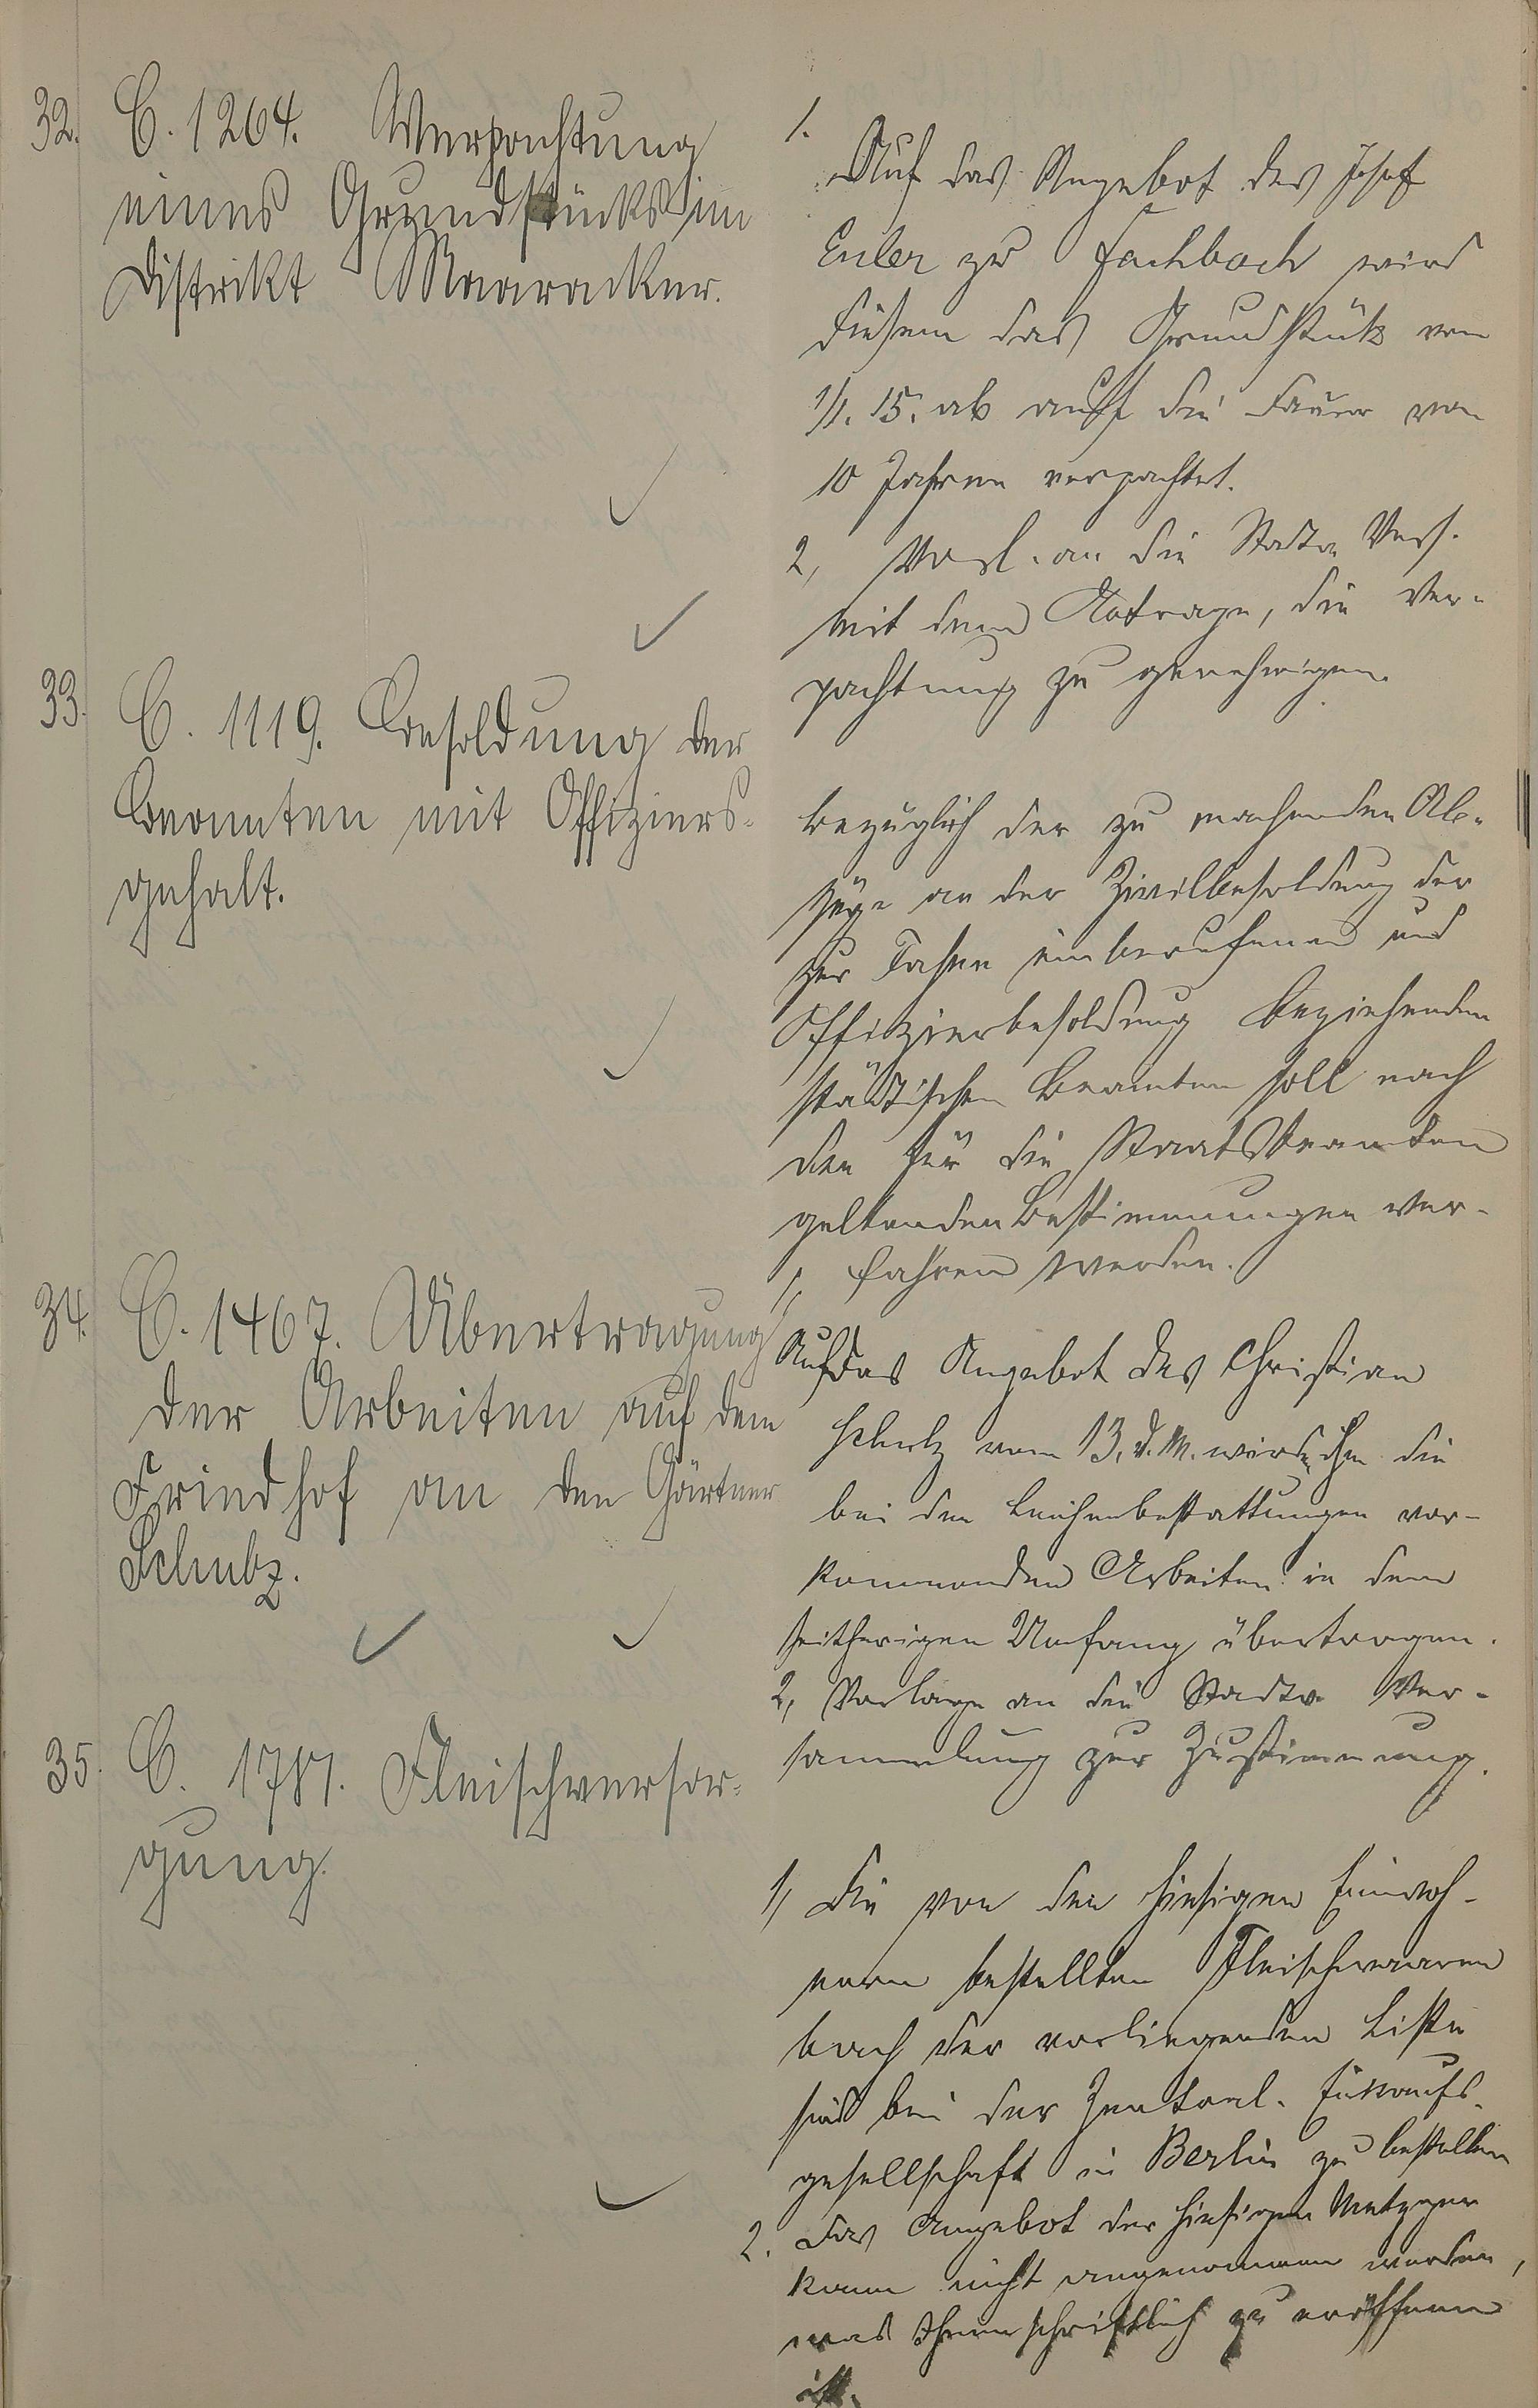 32.
C. 1264. Verpachtung
eines Grundstücks im
Distrikt Maaracker.
1.
Auf das Angebot des Josef
Euler zu Fachbach wird
diesem das Grundstück vom
1/1. 15. ab auf die Dauer von
10 Jahren verpachtet.
2, Vorl. an die Stadtv. Vers.
mit dem Antrage, die Ver-
pachtung zu genehmigen.
33.
C. 1119. Besoldung der
Beamten mit Offiziers-
gehalt.
Bezüglich der zu machenden Ab-
züge an der Zivilbesoldung der
zur Fahne einberufenen und
Offizierbesoldung beziehenden
städtischen Beamten soll nach
den für die Staatsbeamten
geltenden Bestimmungen ver-
fahren werden.
34.
C. 1467. Übertragung
der Arbeiten auf dem
Friedhof an den Gärtner
Schulz.
1,
Auf das Angebot des Christian
Schulz vom 13. d. M. wird ihm die
bei den Leichenbestattungen vor-
kommenden Arbeiten in dem
seitherigen Umfang übertragen.
2, Vorlage an die Stadtv. Ver-
sammlung zur Zustimmung.
35.
C. 1787. Fleischversor-
gung.
1, Die von den hiesigen Einwoh-
nern bestellten Fleischwaaren
nach der vorliegenden Liste
sind bei der Zentral-Einkaufs-
gesellschaft in Berlin zu bestellen
2. Das Angebot der hiesigen Metzger
kann nicht angenommen werden,
was Ihnen schriftlich zu eröffnen
ist.